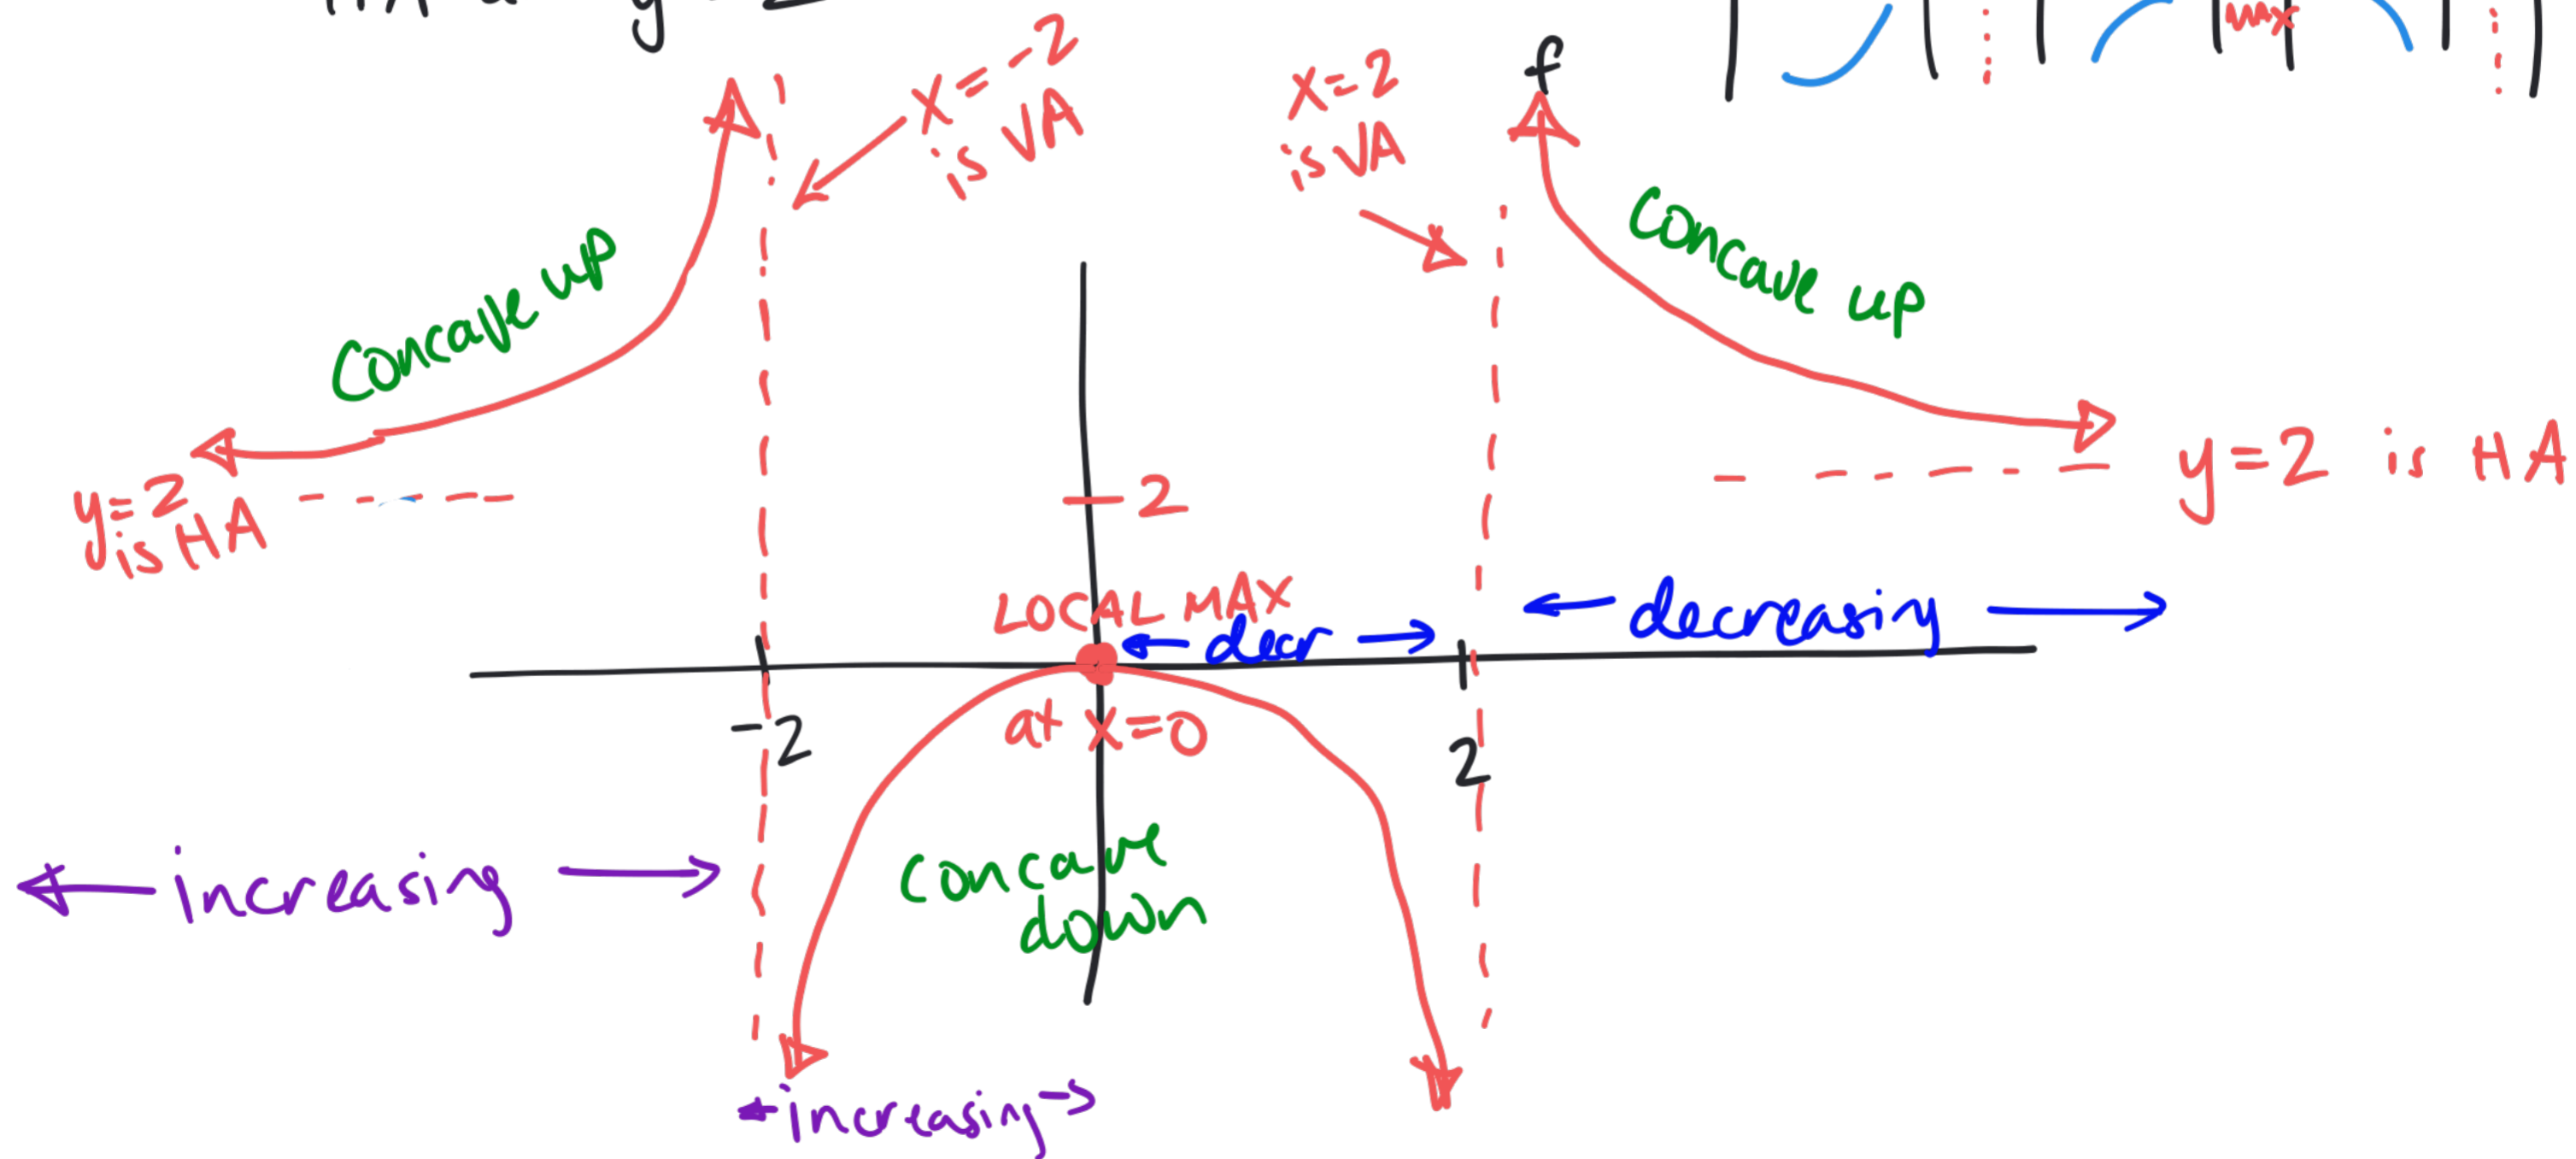 HA @ y = 2
max
x = -2
is VA
x = 2
is VA
f
Concave up
Concave up
y = 2
is HA
2
y = 2 is HA
LOCAL MAX
decr
decreasing
-2
at x = 0
2
increasing
concave
down
increasing